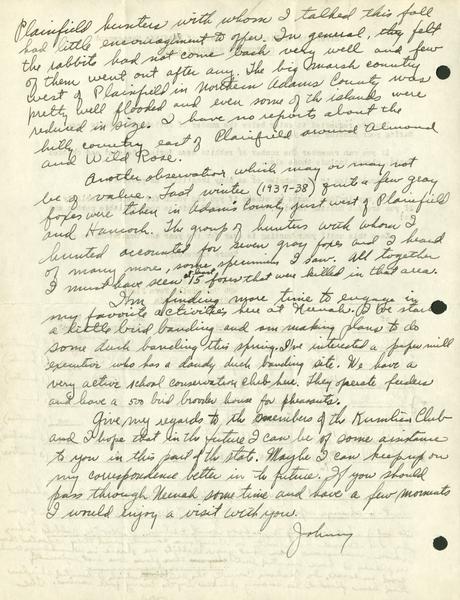 Plainfield hunters with whom I talked this fall
had little encouragement to offer. In general, they felt
the rabbits had not come back very well and few
of them went out after any. The big marsh country
west of Plainfield in Northern Adams County was
pretty well flooded and even some of the islands were
reduced in size. I have no reports about the
hilly country east of Plainfield around Almond
and Wild Rose.
Another observation which may or may not
be of value. Last winter (1937-38) quite a few gray
foxes were taken in Adams County just west of Plainfield
and Hancock. The group of hunters with whom I
hunted accounted for seven gray foxes and I heard
of many more, some specimens I saw. All together
I must have seen at least 15 foxes that were killed in that area.
I'm finding more time to engage in
my favorite activities here at Neenah. I've started
a little bird banding and am making plans to do
some duck banding this spring. I've interested a paper mill
executive who has a dandy duck banding site. We have a
very active school conservation club here. They operate feeders
and have a 500 bird brooder house for pheasants.
Give my regards to the members of the Kumlien Club
and I hope that in the future I can be of some assistance
to you in this part of the state. Maybe I can keep up on
my correspondence better in the future. If you should
pass through Neenah some time and have a few moments
I would enjoy a visit with you.
Johnny